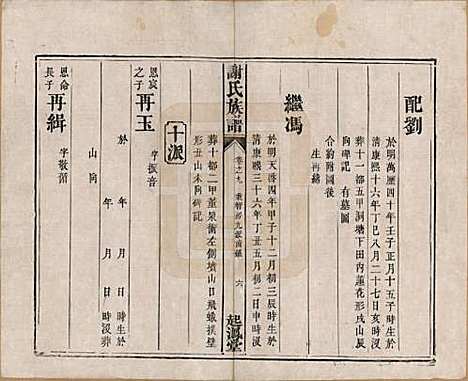 配劉
於明萬曆四十年壬子正月十五子時生於
清康熙十六年丁巳八月二十七日亥時沒
葬十一都五甲洞塘下田內蓮花形戌山辰
向碑記 有墓圖
合約附圖後
生再緒
繼馮
於明天啟四年甲子十二月初三辰時生於
清康熙三十六年丁丑五月初二日申時沒
謝氏族譜
卷之九
六
起鳳堂
葬十都二甲董泉衝左側墳山日飛蛾撲壁
形丑山未向碑記
十派
恩宸之子
再玉
字振音
於 年 月 日 時生於
年 月 日 時沒葬
山 向
恩命長子
再緝
字敬預